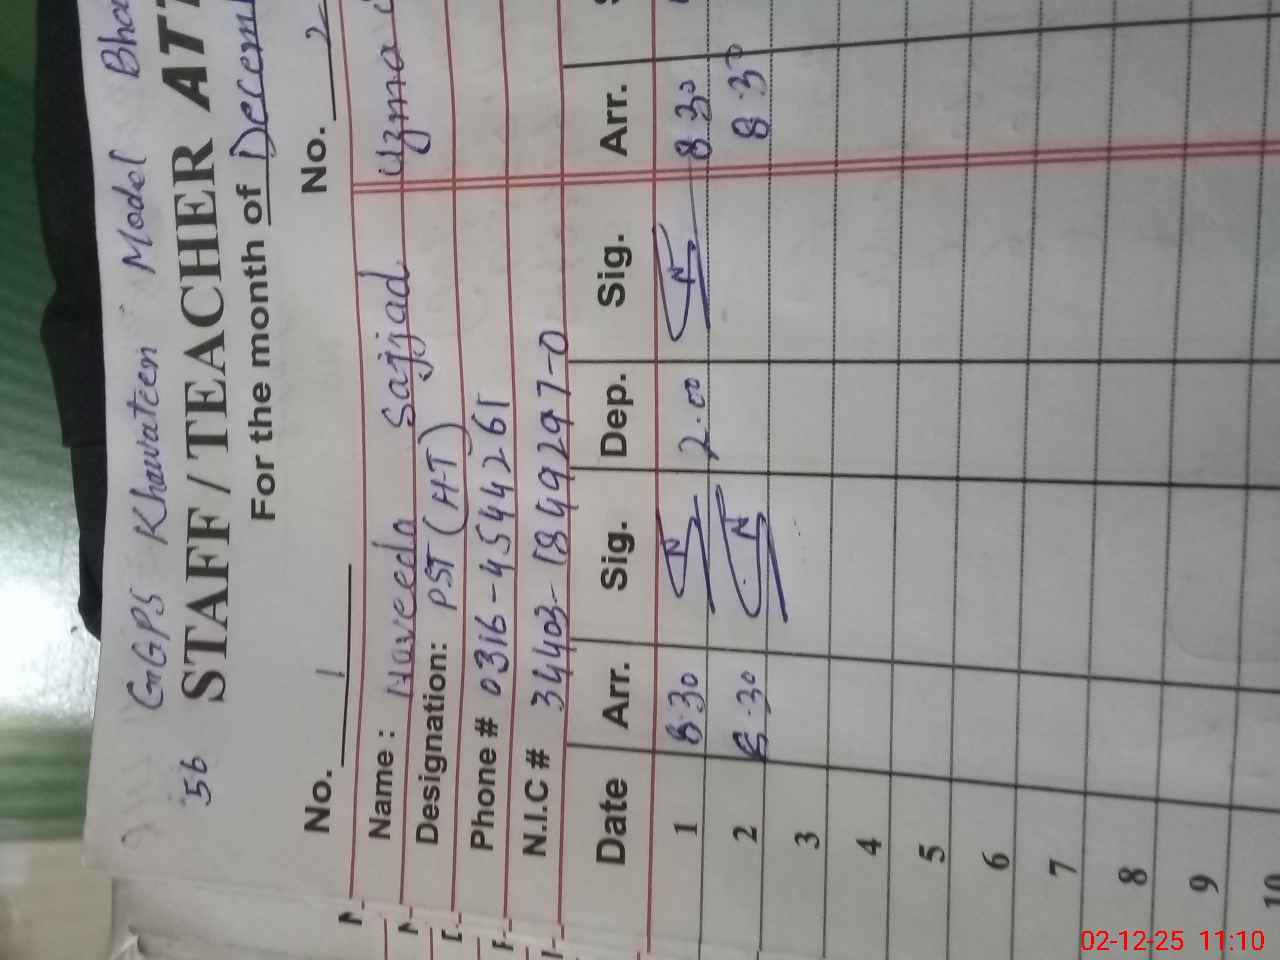 56 GGPS Khawateen Model Bha
STAFF / TEACHER ATT
For the month of Decem
No. 1 No. 2
Name : Naveeda Sajjad Uzma
Designation: PST (H-T)
Phone # 0316-4544261
N.I.C # 34403-1849297-0
Date Arr. Sig. Dep. Sig. Arr.
1 8.30 N 2.00 N 8.30
2 8.30 N 8.30
3
4
5
6
7
8
9
10
02-12-25 11:10